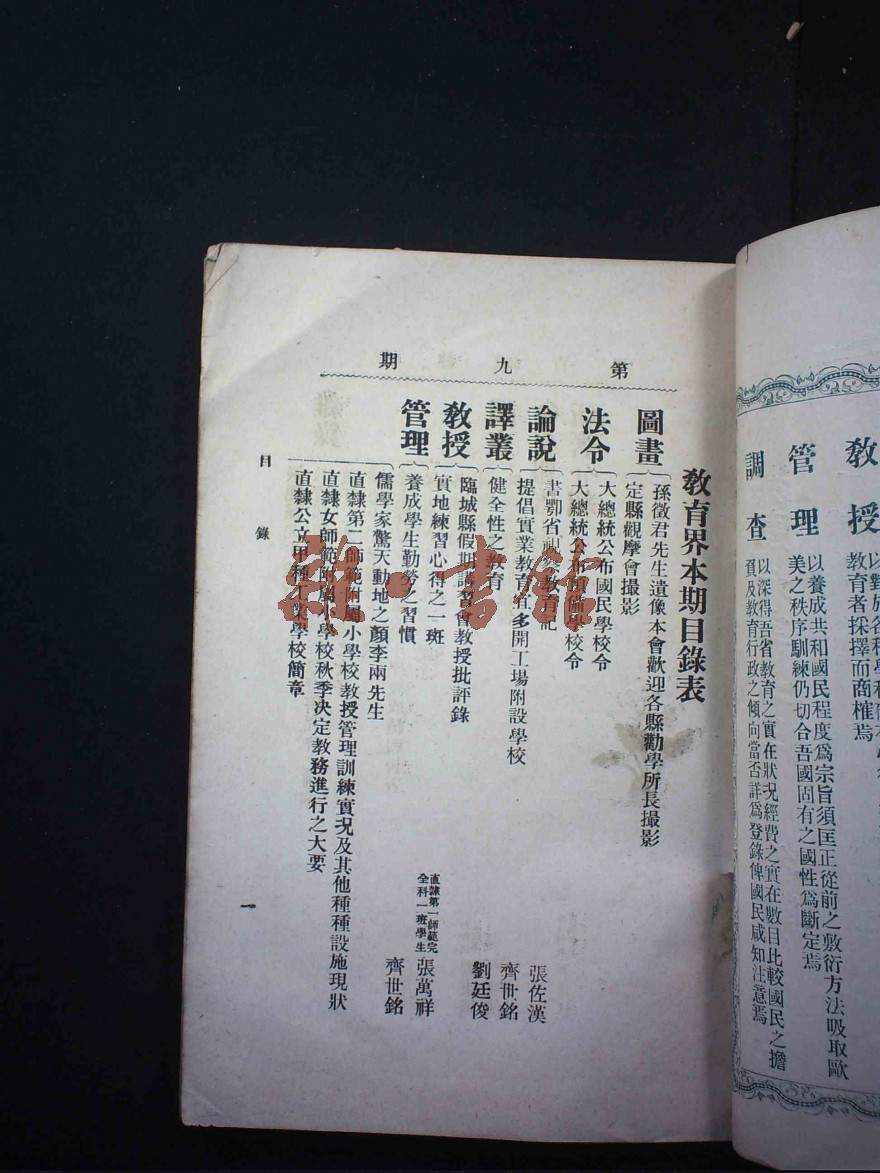 教授
教育者採擇而商榷焉
管理
以養成共和國民程度爲宗旨須匡正從前之敷衍方法吸取歐
美之秩序訓練仍切合吾國固有之國性爲斷定焉
調查
以深得吾省教育之實在狀况經費之實在數目比較國民之擔
負及教育行政之傾向當否詳爲登錄俾國民咸知注意焉
第九期
教育界本期目錄表
圖畫
孫徵君先生遺像本會歡迎各縣勸學所長撮影
定縣觀摩會撮影
法令
大總統公布國民學校令
大總統公布預備學校令
論說
書鄂省視察教育記 張佐漢
提倡實業教育宜多開工場附設學校 齊世銘
譯叢
健全性之教育 劉廷俊
教授
臨城縣假期講習會教授批評錄
實地練習心得之一班 直隸第一師範完全科一班學生 張萬祥
管理
養成學生勤勞之習慣 齊世銘
儒學家驚天動地之顏李兩先生
直隸第二師範附屬小學校教授管理訓練實况及其他種種設施現狀
直隸女師範附屬小學校秋季决定教務進行之大要
直隸公立甲種工業學校簡章
目錄
一
雜·書館